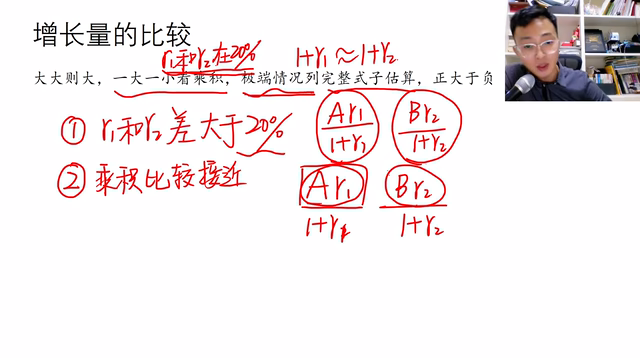 增长量的比较
r₁和r₂在20% 1+r₁≈1+r₂
大大则大，一大一小看乘积，极端情况列完整式子估算，正大于负
① r₁和r₂差大于20% Ar₁/1+r₁ Br₂/1+r₂
② 乘积比较接近 Ar₁/1+r₁ Br₂/1+r₂